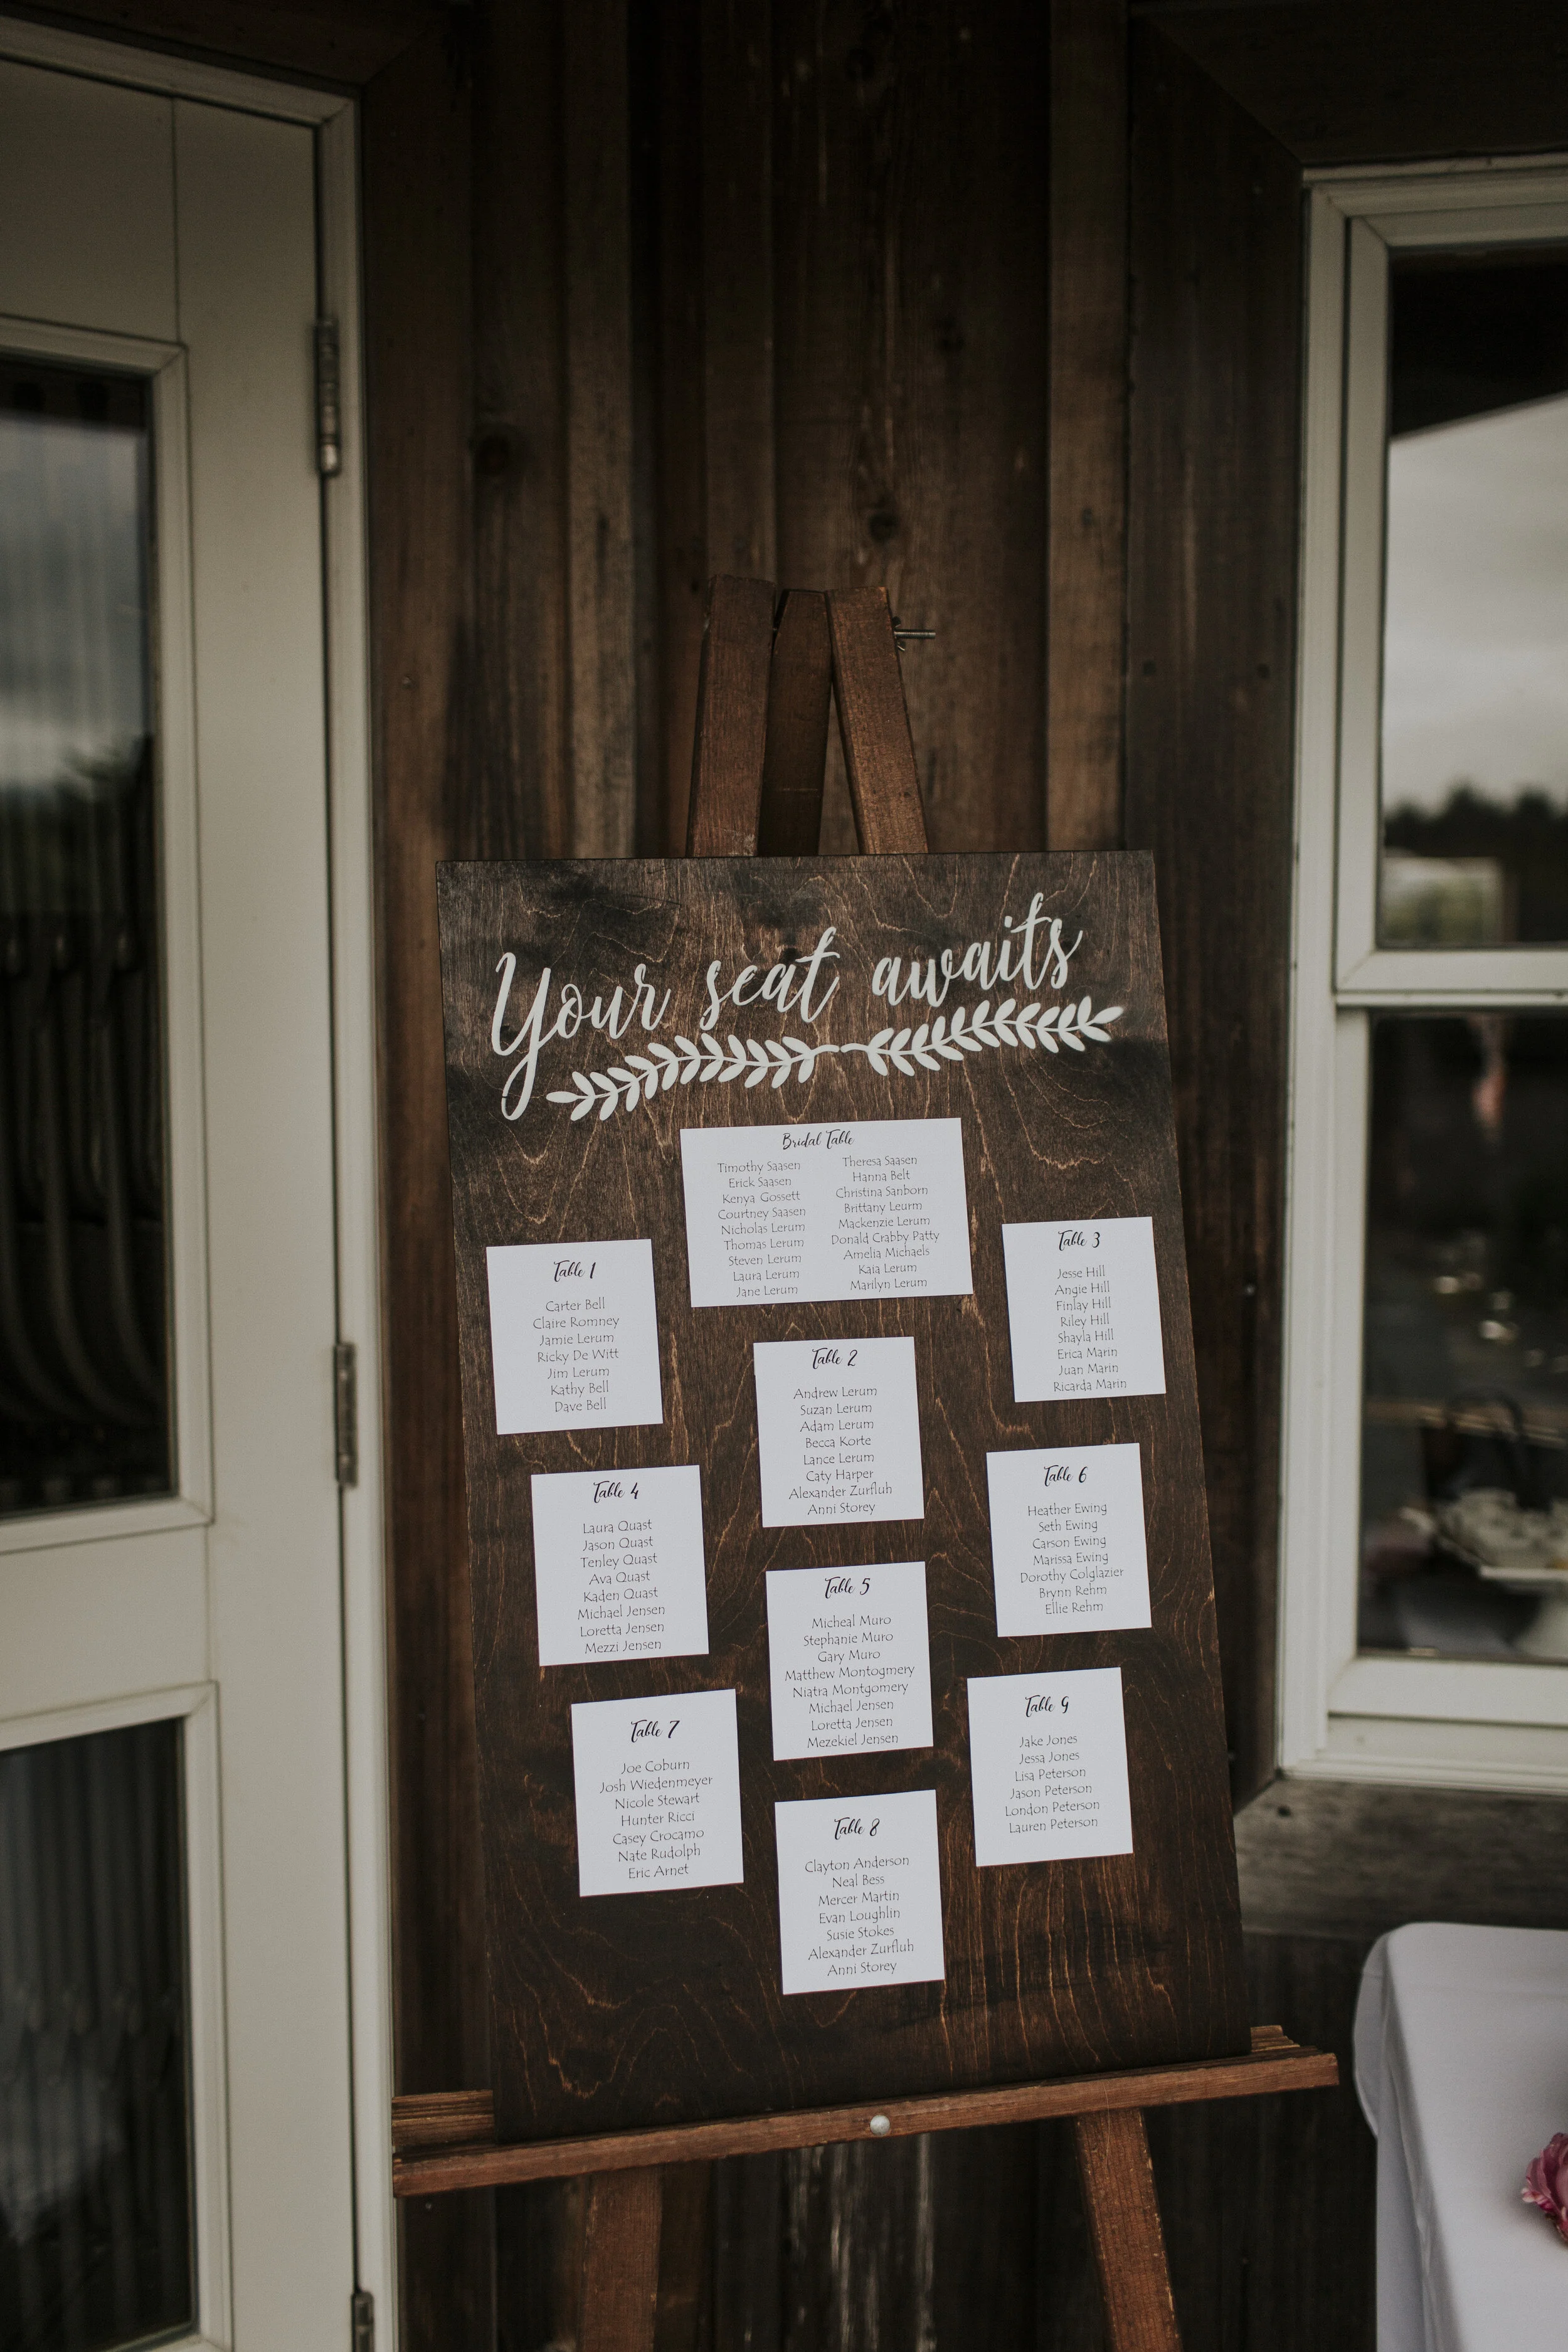 Your seat awaits
Bridal Table
Timothy Saasen
Erick Saasen
Kenya Gossett
Courtney Saasen
Nicholas Lerum
Thomas Lerum
Steven Lerum
Laura Lerum
Jane Lerum
Theresa Saasen
Hanna Belt
Christina Sanborn
Brittany Leurm
Mackenzie Lerum
Donald Crabby Patty
Amelia Michaels
Kaia Lerum
Marilyn Lerum
Table 1
Carter Bell
Claire Romney
Jamie Lerum
Ricky De Witt
Jim Lerum
Kathy Bell
Dave Bell
Table 2
Andrew Lerum
Suzan Lerum
Adam Lerum
Becca Korte
Lance Lerum
Caty Harper
Alexander Zurfluh
Anni Storey
Table 3
Jesse Hill
Angie Hill
Finlay Hill
Riley Hill
Shayla Hill
Erica Marin
Juan Marin
Ricarda Marin
Table 4
Laura Quast
Jason Quast
Tenley Quast
Ava Quast
Kaden Quast
Michael Jensen
Loretta Jensen
Mezzi Jensen
Table 5
Micheal Muro
Stephanie Muro
Gary Muro
Matthew Montogmery
Niatra Montgomery
Michael Jensen
Loretta Jensen
Mezekiel Jensen
Table 6
Heather Ewing
Seth Ewing
Carson Ewing
Marissa Ewing
Dorothy Colglazier
Brynn Rehm
Ellie Rehm
Table 7
Joe Coburn
Josh Wiedenmeyer
Nicole Stewart
Hunter Ricci
Casey Crocamo
Nate Rudolph
Eric Arnet
Table 8
Clayton Anderson
Neal Bess
Mercer Martin
Evan Loughlin
Susie Stokes
Alexander Zurfluh
Anni Storey
Table 9
Jake Jones
Jessa Jones
Lisa Peterson
Jason Peterson
London Peterson
Lauren Peterson